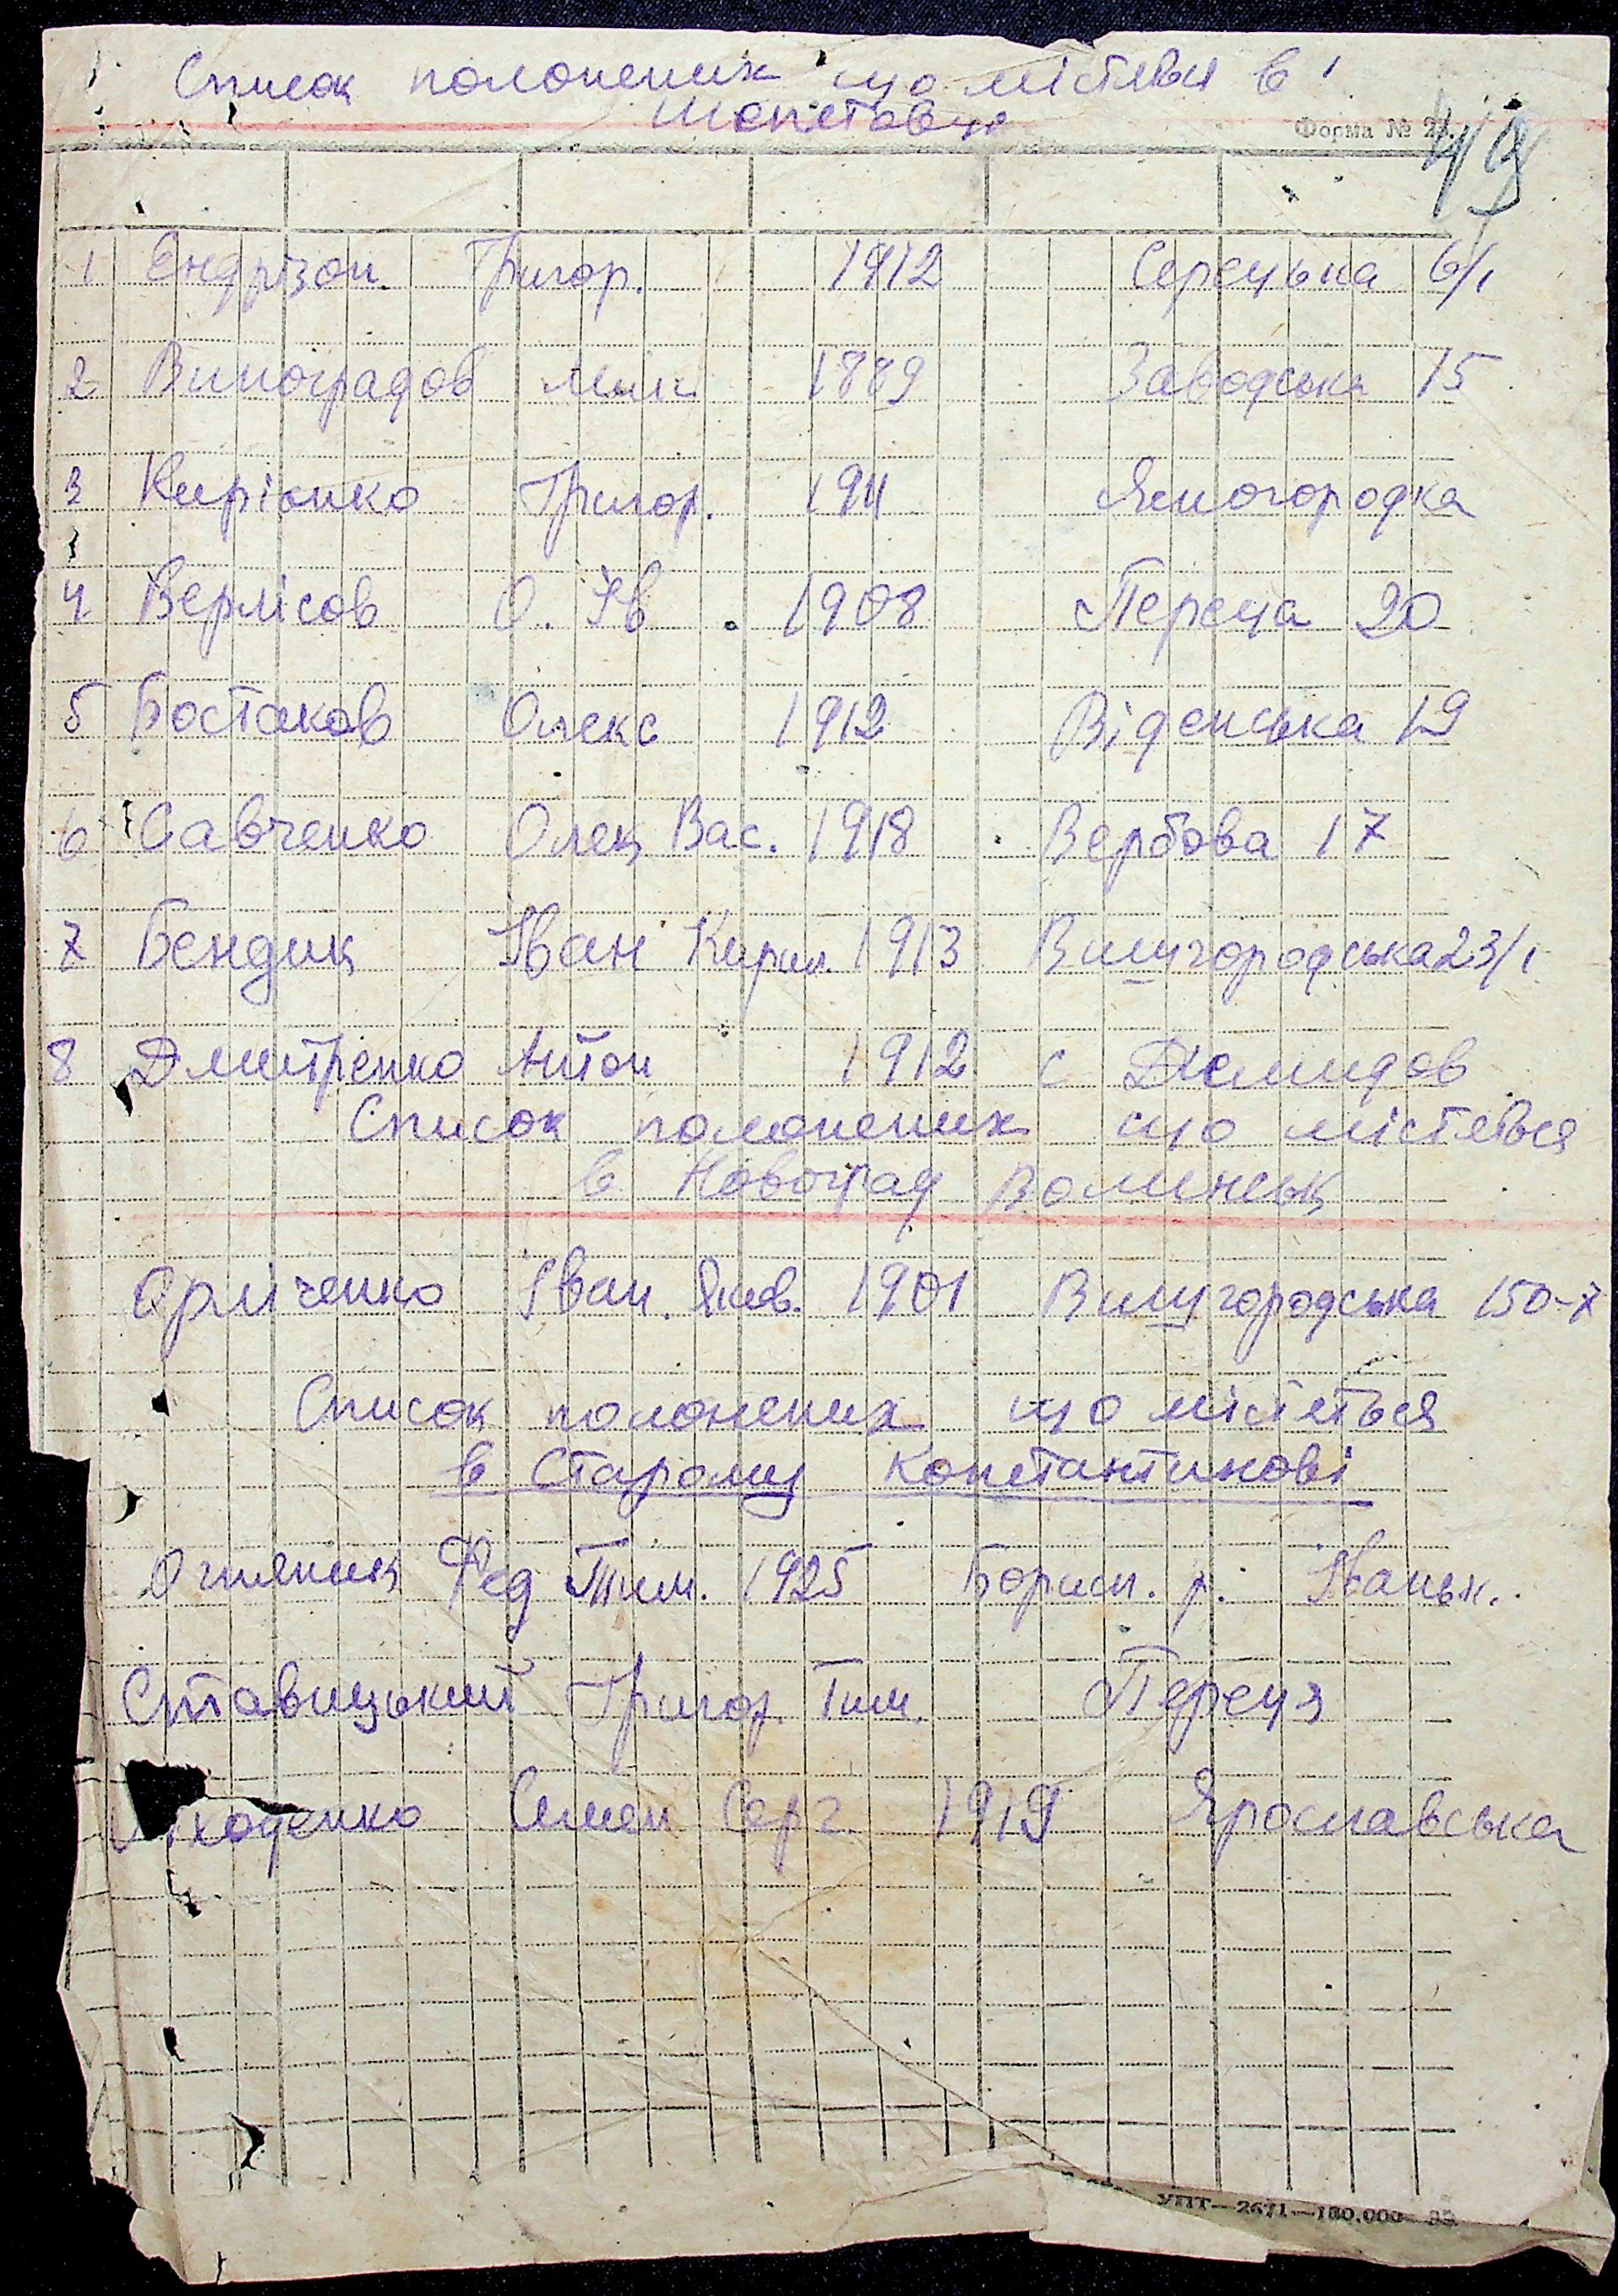 Список полонених що містяться в
Шепетовці
Форма № 23.
49
1 Ендрізон. Григор. 1912 Серецька 6/1
2 Виноградов Мик 1889 Заводська 15
3 Кирієнко Григор. 1911 Ясногородка
4 Верлісов О. Ів. 1908 Переца 20
5 Бостаков Олекс 1912 Віденська 19
6 Савченко Олек Вас. 1918 Вербова 17
7 Бендик Іван Кирил. 1913 Вишгородська 23/1
8 Дмитренко Антон 1912 с Демидов
Список полонених що містяться
в Новоград Волинськ
Орліченко Іван. Яков. 1901 Вишгородська 150-7
Список полонених що містяться
в Старому Константинові
Огняник Фед Тим. 1925 Борисп. р. Іваньк.
Ставицький Григор. Тим. Переця
ходенко Семен Серг. 1919 Ярославська
УПТ—2671—100.000